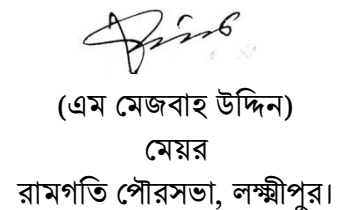 (এম মেজবাহ উদ্দিন)
মেয়র
রামগতি পৌরসভা, লক্ষ্মীপুর।